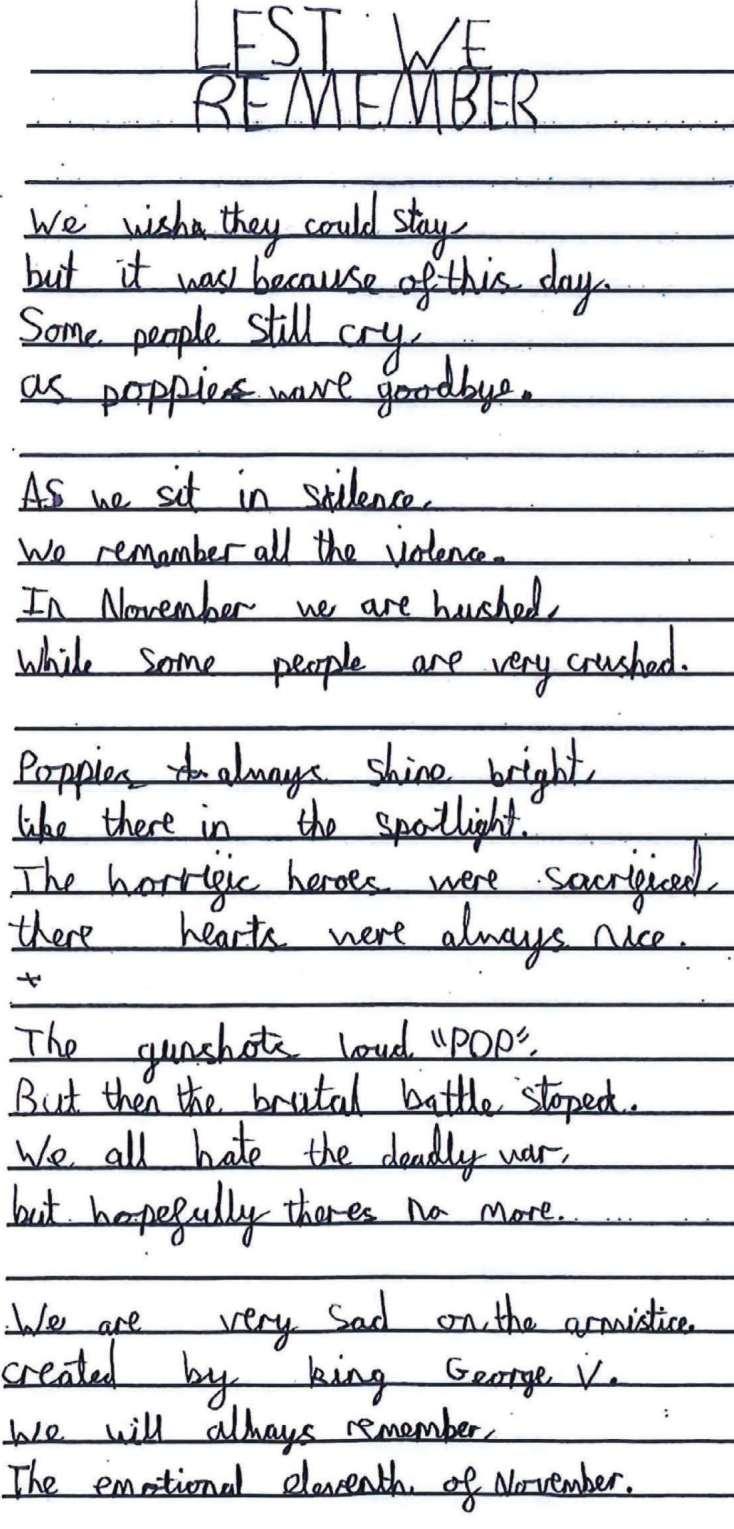 LEST WE
REMEMBER
We wish they could stay,
but it was because of this day.
Some people still cry,
as poppies wave goodbye.
As we sit in silence,
We remember all the violence.
In November we are hushed,
While some people are very crushed.
Poppies always shine bright,
like there in the spotlight.
The horrific heroes were sacrificed,
there hearts were always nice.
The gunshots loud "POP",
But then the brutal battle stoped.
We all hate the deadly war,
but hopefully theres no more.
We are very sad on the armistice
created by king George V.
We will always remember,
The emotional eleventh of November.